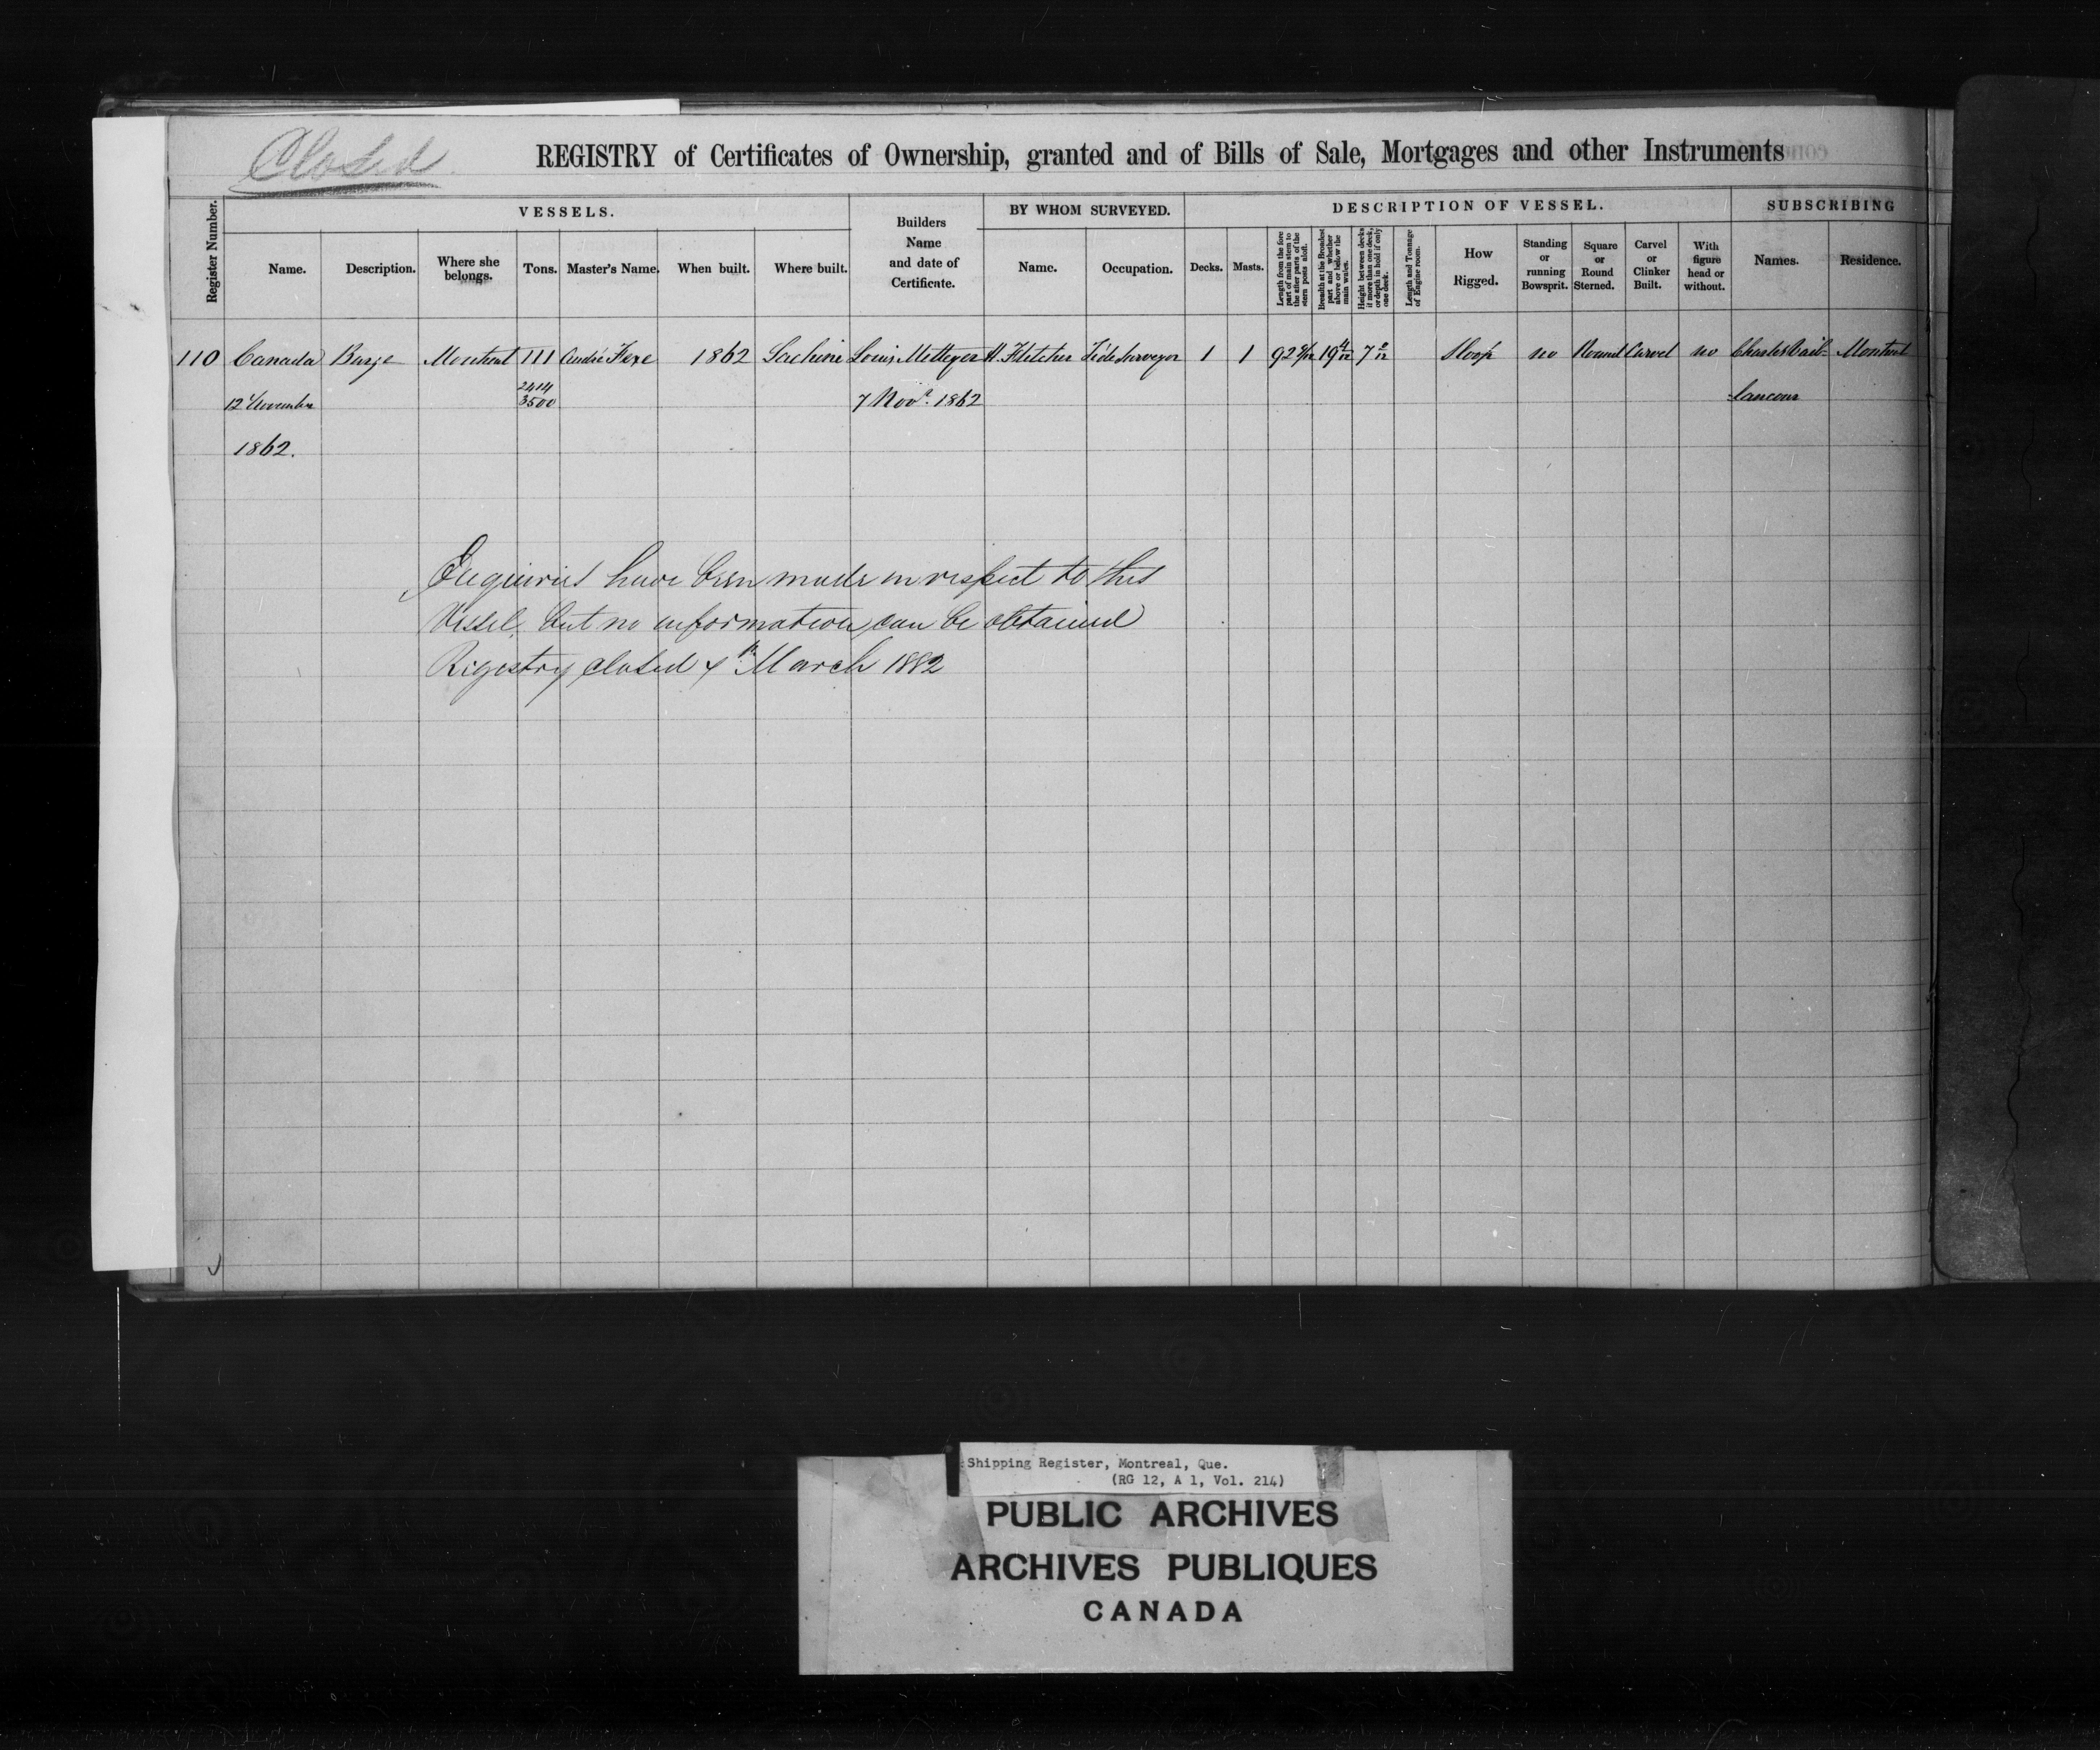 Closed
REGISTRY of Certificates of Ownership, granted and of Bills of Sale, Mortgages and other Instruments
Register Number.
VESSELS.
Name.
Description.
Where she belongs.
Tons.
Master's Name.
When built.
Where built.
Builders Name and date of Certificate.
BY WHOM SURVEYED.
Name.
Occupation.
DESCRIPTION OF VESSEL.
Decks.
Masts.
Length from the fore part of main stem to the after parts of the stern posts aloft.
Breadth at the Broadest part and whether above or below the main wales.
Height between decks if more than one deck, or depth in hold if only one deck.
Length and Tonnage of Engine room.
How Rigged.
Standing or running Bowsprit.
Square or Round Sterned.
Carvel or Clinker Built.
With figure head or without.
SUBSCRIBING
Names.
Residence.
110 Canada Barge Montreal 111 André 1862 Lachine Louis H. Fletcher Tide Surveyor 1 1 92 19 4/12 7 Sloop no Round Carvel no Charles Montreal
12 November 2414 7 Novr. 1862
3500
1862.
Enquiries have been made in respect to this
Vessel, but no information can be obtained
Registry closed 4th March 1882
Shipping Register, Montreal, Que.
(RG 12, A 1, Vol. 214)
PUBLIC ARCHIVES
ARCHIVES PUBLIQUES
CANADA